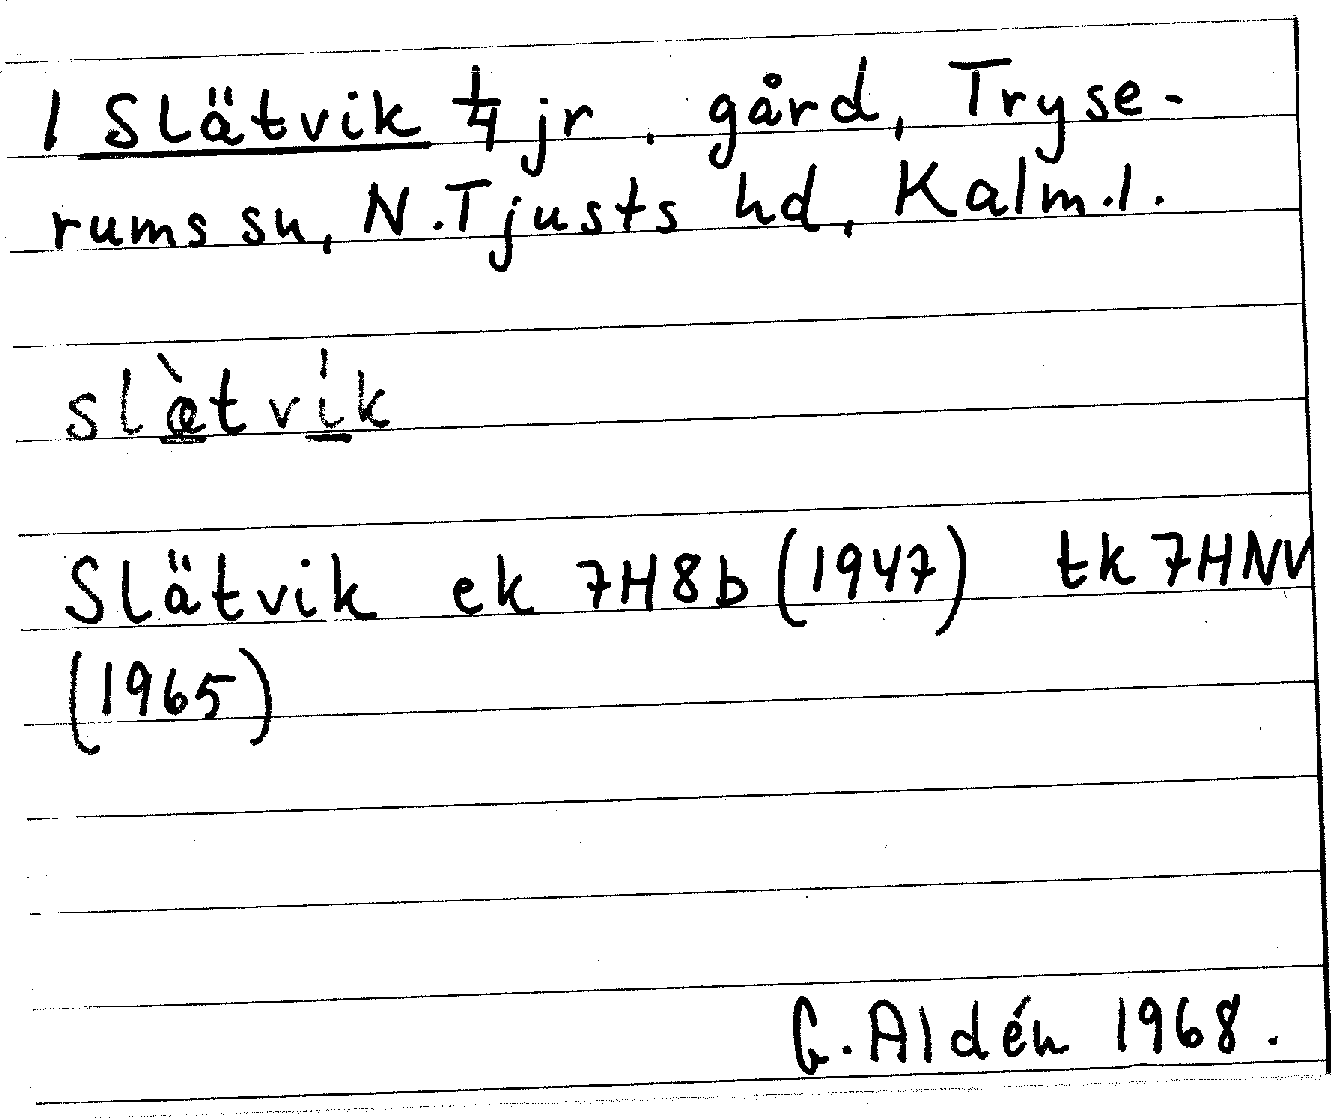 1 Slätvik 1/4 jr. gård, Tryse-
rums sn, N. Tjusts hd, Kalm. l.
slæ̀tvík
Slätvik ek 7H8b (1947) tk 7HNV
(1965)
G. Aldén 1968.